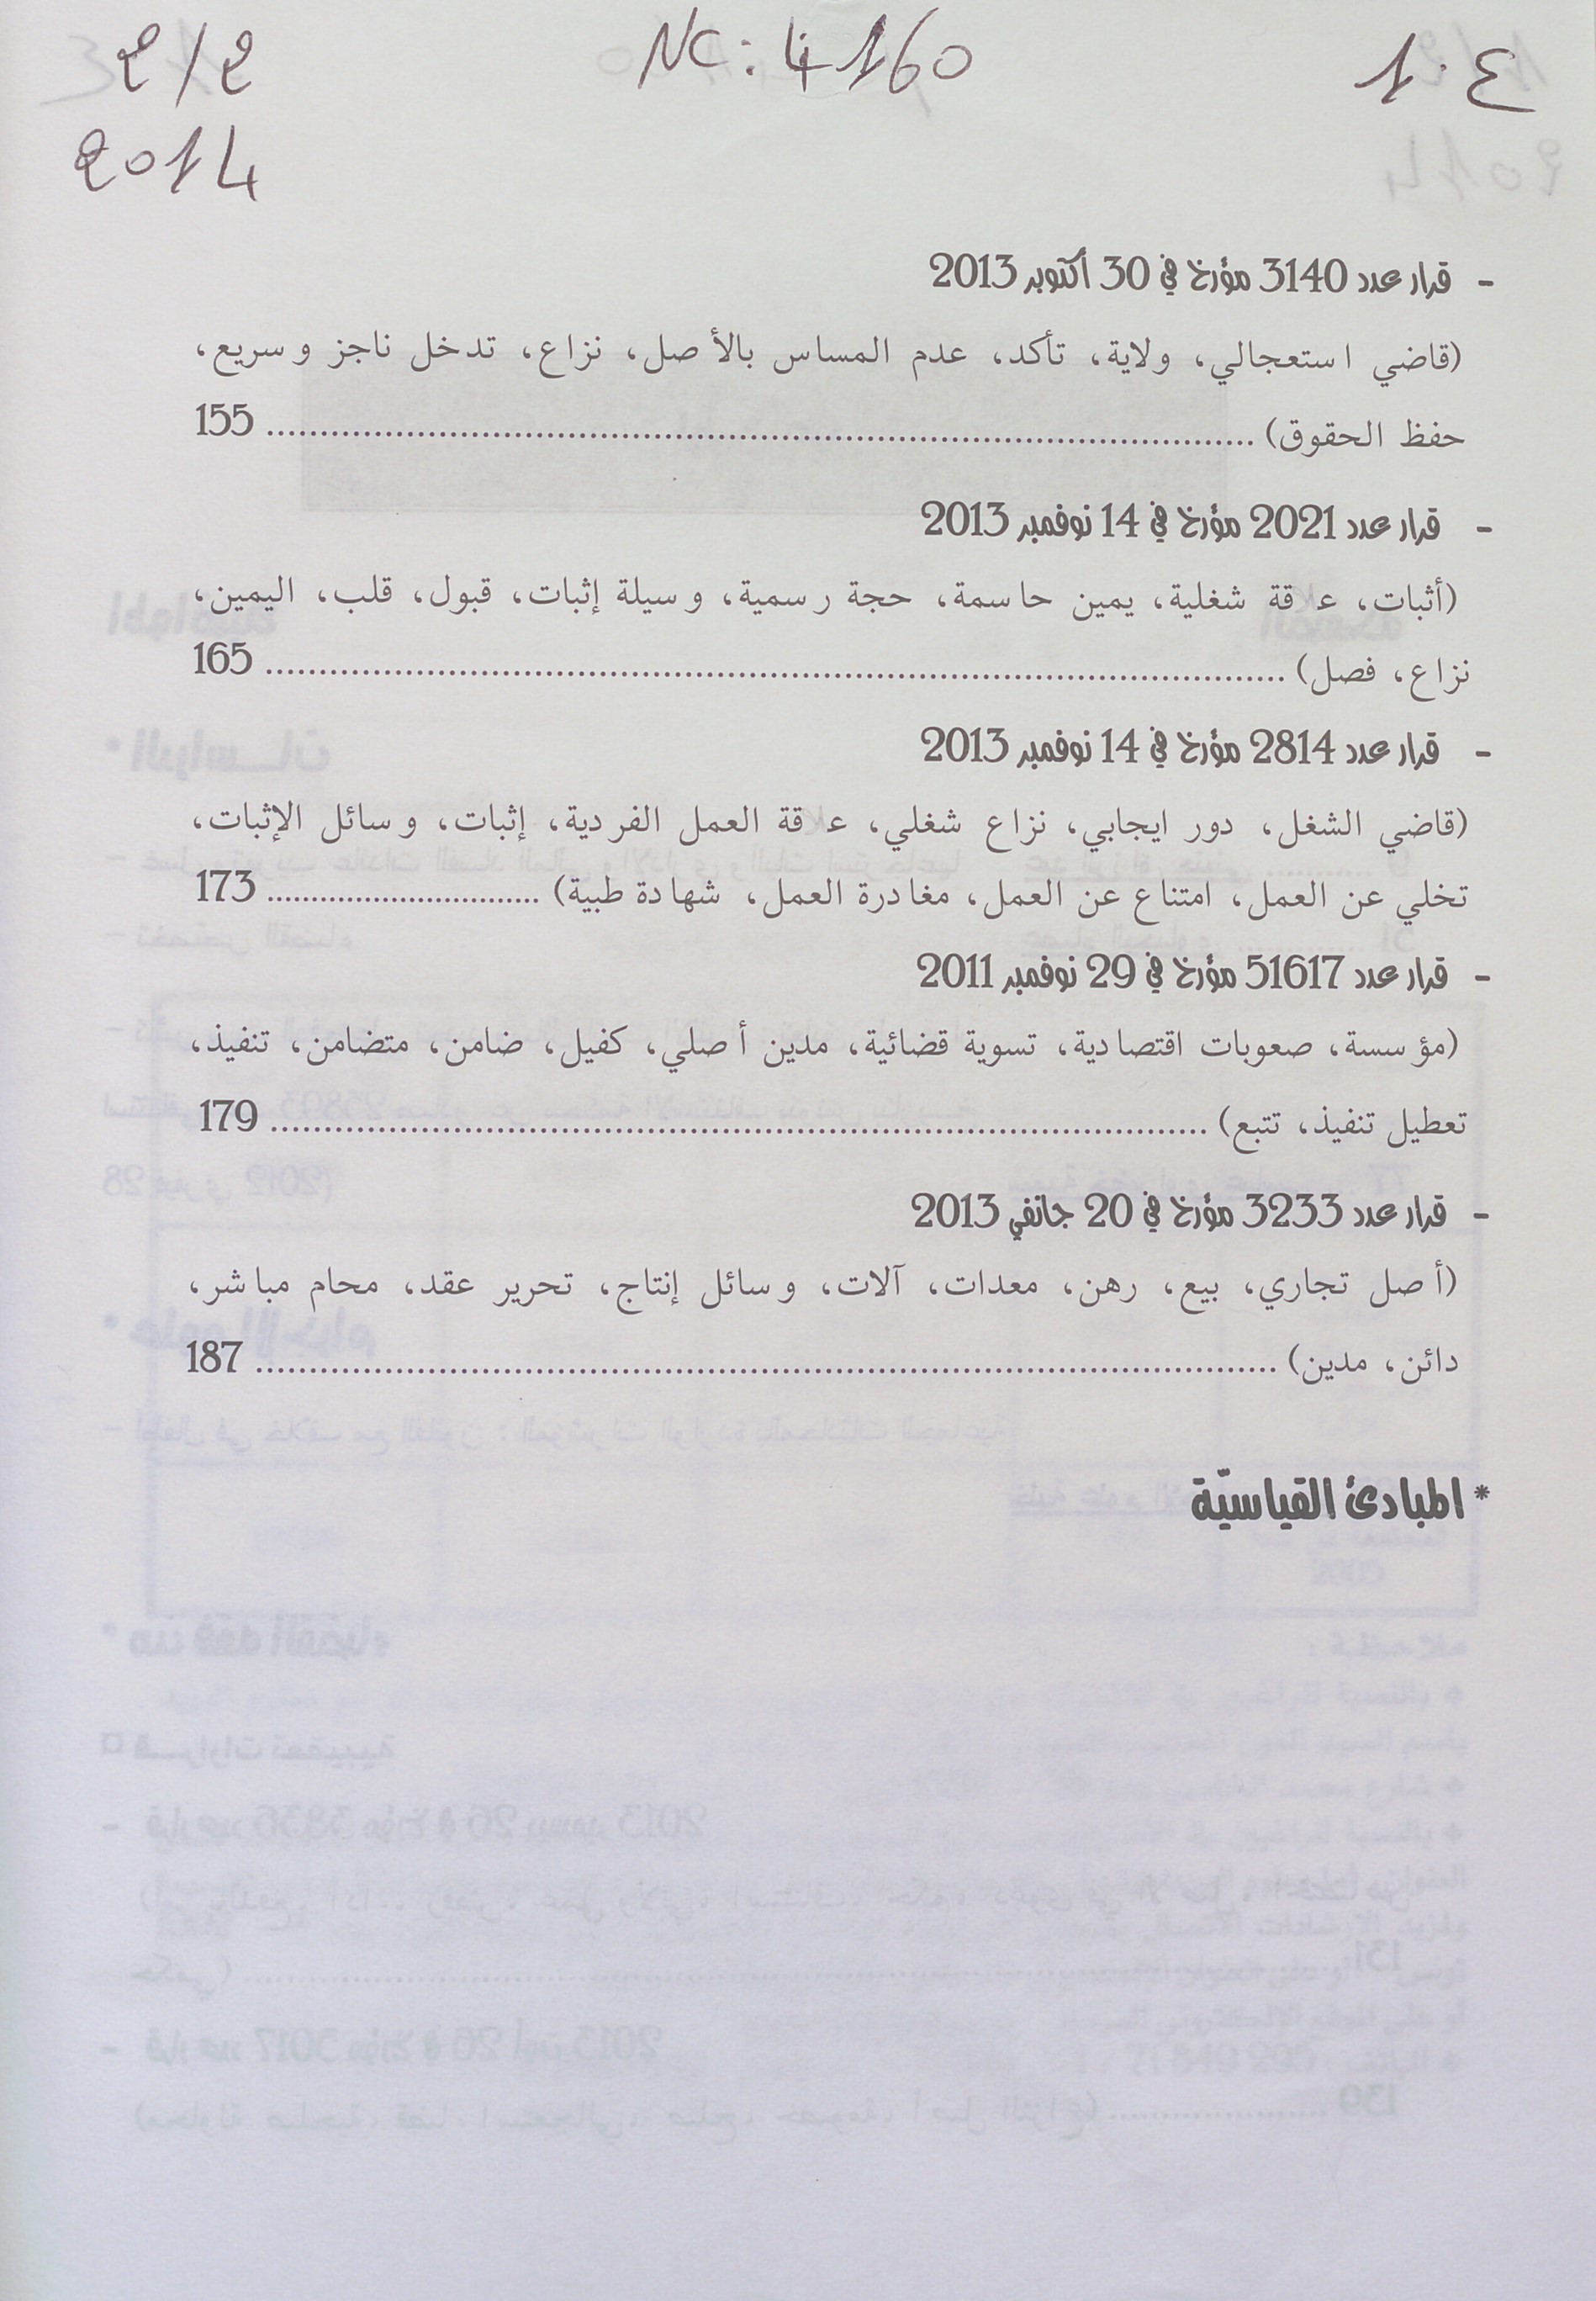 2/2
NC: 4160
1.ع
2014
- قرار عدد 3140 مؤرخ في 30 أكتوبر 2013
(قاضي استعجالي، ولاية، تأكد، عدم المساس بالأصل، نزاع، تدخل ناجز وسريع،
حفظ الحقوق) ........ 155
- قرار عدد 2021 مؤرخ في 14 نوفمبر 2013
(أثبات، ع قة شغلية، يمين حاسمة، حجة رسمية، وسيلة إثبات، قبول، قلب، اليمين،
نزاع، فصل) ........ 165
- قرار عدد 2814 مؤرخ في 14 نوفمبر 2013
(قاضي الشغل، دور ايجابي، نزاع شغلي، ع قة العمل الفردية، إثبات، وسائل الإثبات،
تخلي عن العمل، امتناع عن العمل، مغادرة العمل، شهادة طبية) ........ 173
- قرار عدد 51617 مؤرخ في 29 نوفمبر 2011
(مؤسسة، صعوبات اقتصادية، تسوية قضائية، مدين أصلي، كفيل، ضامن، متضامن، تنفيذ،
تعطيل تنفيذ، تتبع) ........ 179
- قرار عدد 3233 مؤرخ في 20 جانفي 2013
(أصل تجاري، بيع، رهن، معدات، آلات، وسائل إنتاج، تحرير عقد، محام مباشر،
دائن، مدين) ........ 187
* المبادئ القياسيّة